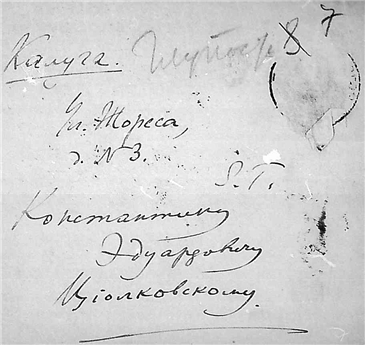 Калуга.
8 7
Ул. Жореса,
д. N 3.
Константину
Эдуардовичу
Ціолковскому